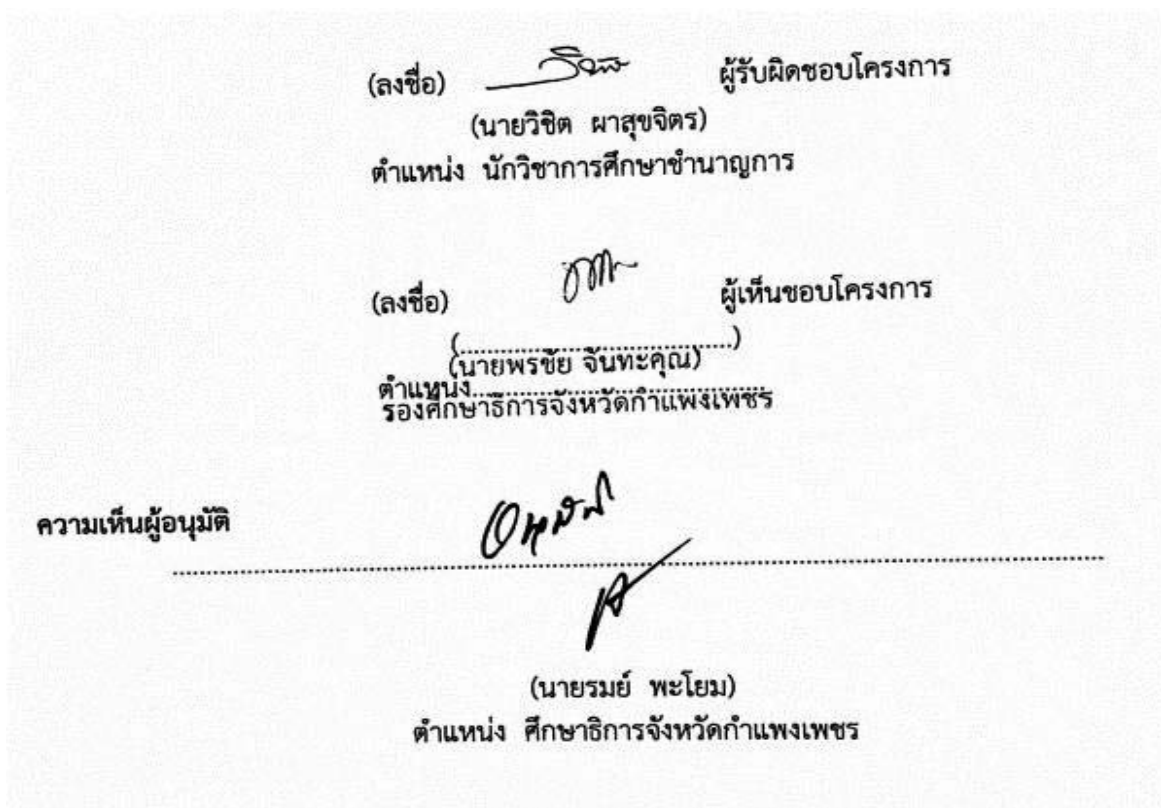 (ลงชื่อ) ผู้รับผิดชอบโครงการ
(นายวิชิต ผาสุขจิตร)
ตำแหน่ง นักวิชาการศึกษาชำนาญการ
(ลงชื่อ) ผู้เห็นชอบโครงการ
(..............................................)
(นายพรชัย จันทะคุณ)
ตำแหน่ง..................................................
รองศึกษาธิการจังหวัดกำแพงเพชร
ความเห็นผู้อนุมัติ
อนุมัติ
(นายรมย์ พะโยม)
ตำแหน่ง ศึกษาธิการจังหวัดกำแพงเพชร